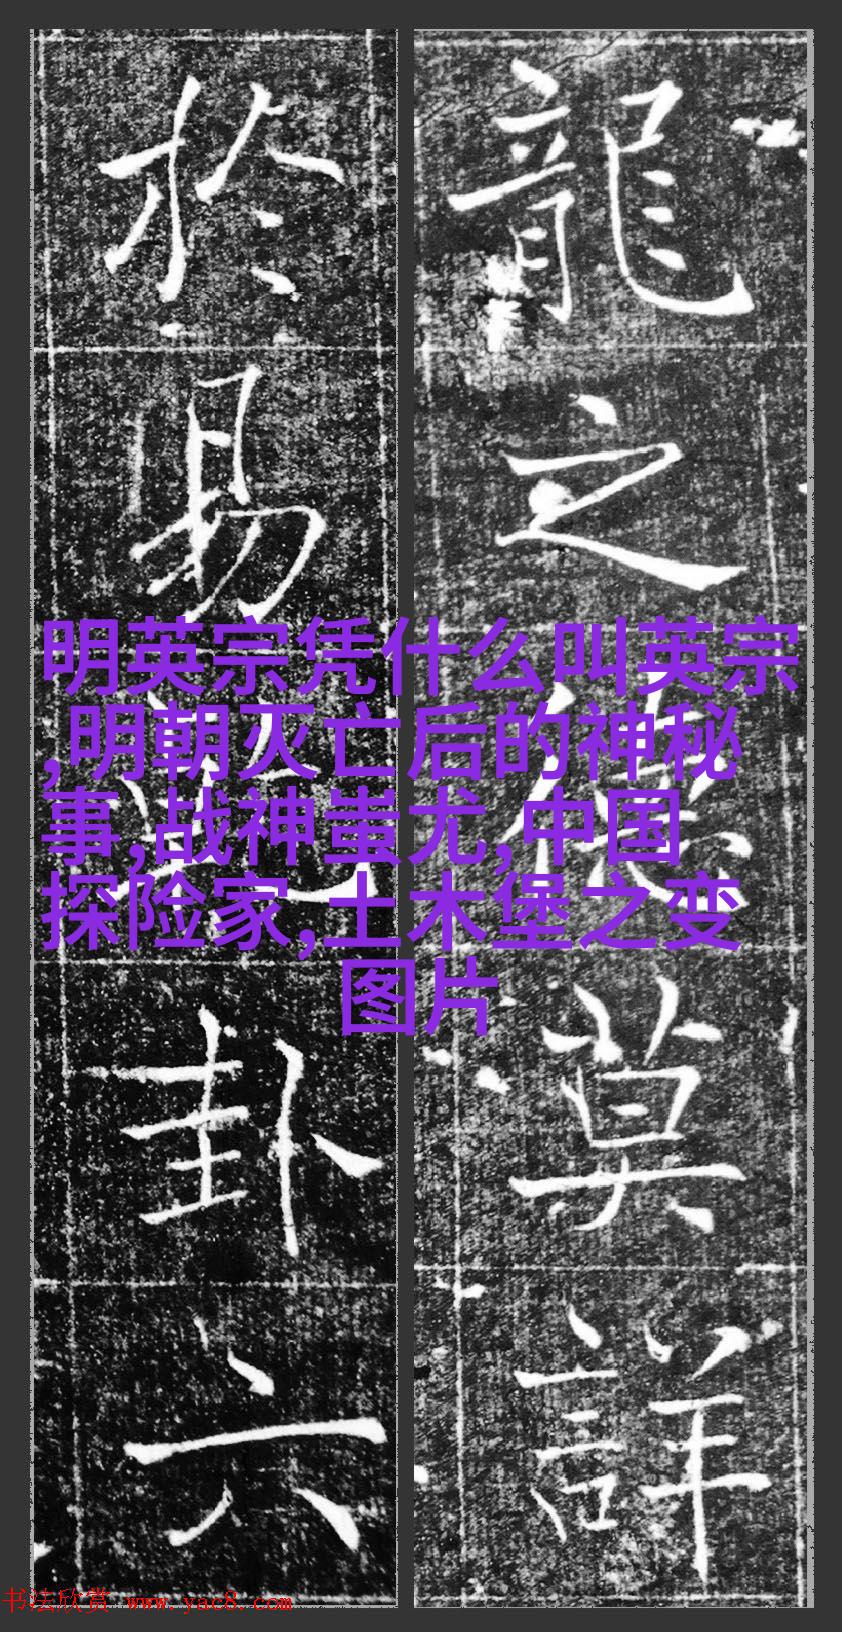 龍之德莫詳
於易卦六
明英宗凭什么叫英宗
,明朝灭亡后的神秘
事,战神蚩尤,中国
探险家,土木堡之变
图片
书法欣赏 www.yac8.com